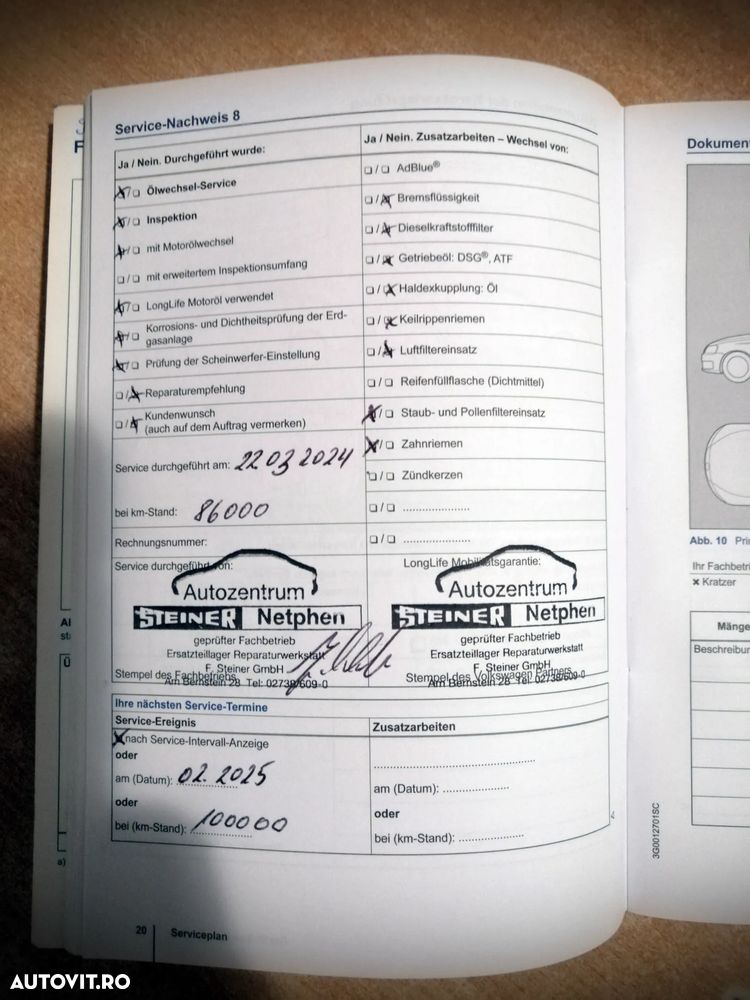 Service-Nachweis 8
Ja / Nein. Durchgeführt wurde:
Ölwechsel-Service
Inspektion
mit Motorölwechsel
mit erweitertem Inspektionsumfang
LongLife Motoröl verwendet
Korrosions- und Dichtheitsprüfung der Erd-
gasanlage
Prüfung der Scheinwerfer-Einstellung
Reparaturempfehlung
Kundenwunsch
(auch auf dem Auftrag vermerken)
Service durchgeführt am: 22 03 2024
bei km-Stand: 86000
Rechnungsnummer:
Service durchgeführt von:
Autozentrum
STEINER Netphen
geprüfter Fachbetrieb
Ersatzteillager Reparaturwerkstatt
F. Steiner GmbH
Stempel des Fachbetriebs
Am Bernstein 28 Tel: 02738/609-0
Ja / Nein. Zusatzarbeiten – Wechsel von:
AdBlue®
Bremsflüssigkeit
Dieselkraftstofffilter
Getriebeöl: DSG®, ATF
Haldexkupplung: Öl
Keilrippenriemen
Luftfiltereinsatz
Reifenfüllflasche (Dichtmittel)
Staub- und Pollenfiltereinsatz
Zahnriemen
Zündkerzen
LongLife Mobilitätsgarantie:
Autozentrum
STEINER Netphen
geprüfter Fachbetrieb
Ersatzteillager Reparaturwerkstatt
F. Steiner GmbH
Stempel des Volkswagen Partners
Am Bernstein 28 Tel: 02738/609-0
Ihre nächsten Service-Termine
Service-Ereignis
nach Service-Intervall-Anzeige
oder
am (Datum): 02. 2025
oder
bei (km-Stand): 100000
Zusatzarbeiten
am (Datum):
oder
bei (km-Stand):
20 Serviceplan
3G0012701SC
Dokumen
Abb. 10 Pri
Ihr Fachbetri
x Kratzer
Mänge
Beschreibun
a)
AUTOVIT.RO